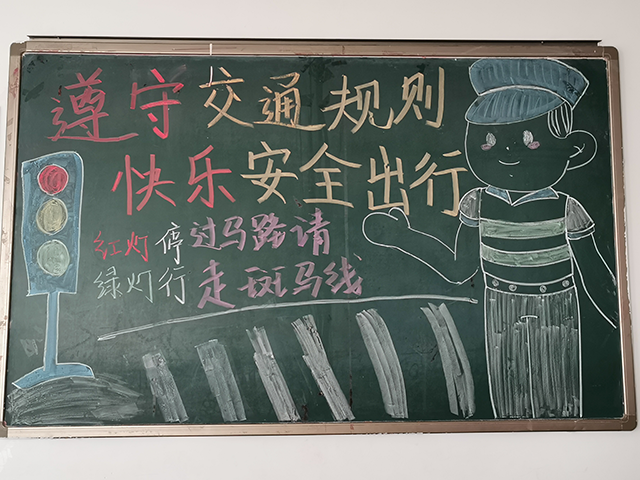 遵守交通规则
快乐安全出行
红灯停
绿灯行
过马路请
走斑马线